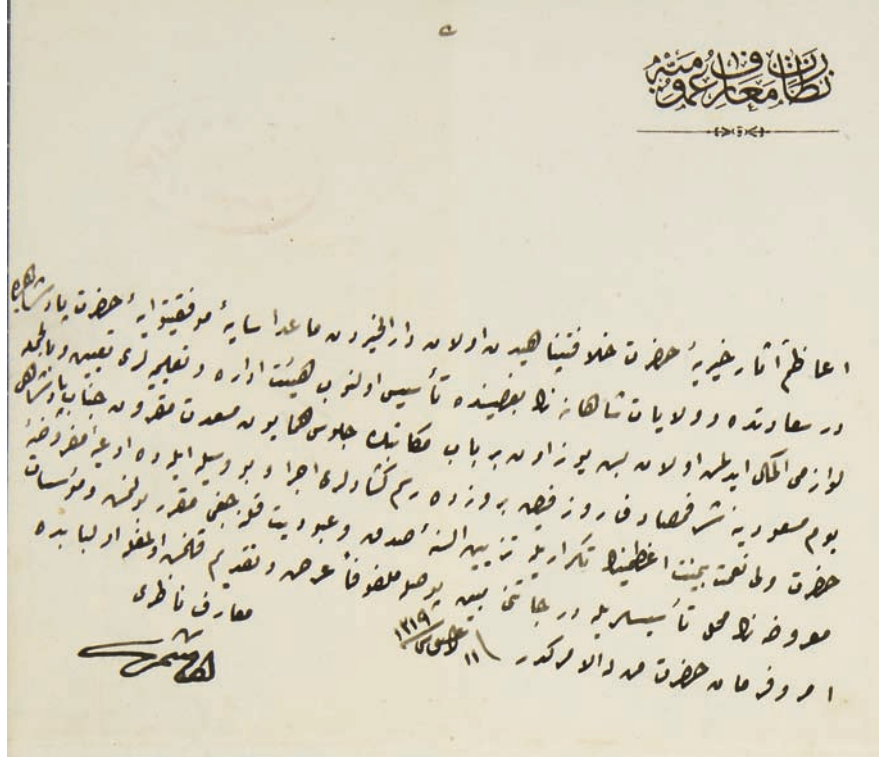 نظارت معارف عمومیه
اعاظم آثار خیریهٔ حضرت خلافتپناهیدن اولان دارالخیردن ماعدا سایهٔ موفقیتوایهٔ حضرت پادشاهیده
درسعادتده و ولایات شاهانه نك بعضیسنده تأسیس اولنوب هیئت اداره و تعلیمیه لری تعیین و بالجمله
لوازمی اکمال ایدلمش اولان بش یوز اون بر باب مکاتبك جلوس همایون سعادت مقرون جناب پادشاهی
یوم مسعودینه شرفمصادف روز فیروزده رسم کشادلری اجرا و بو وسیله ایله ده ادعیهٔ مفروضهٔ
حضرت ولی نعمت بیمنت اعظمینك تکراریله تزیین السنهٔ صدق و عبودیت قلنه جغی مقرر بولنمش و مؤسسات
معروضه نك محل تأسیسلریله درجاتنی مبین پوصله ملفوفاً عرض و تقدیم قلنمش اولمغله اولبابده
امر و فرمان حضرت من له الامرکدر
١١ اغستوس ٣١٩
معارف ناظری